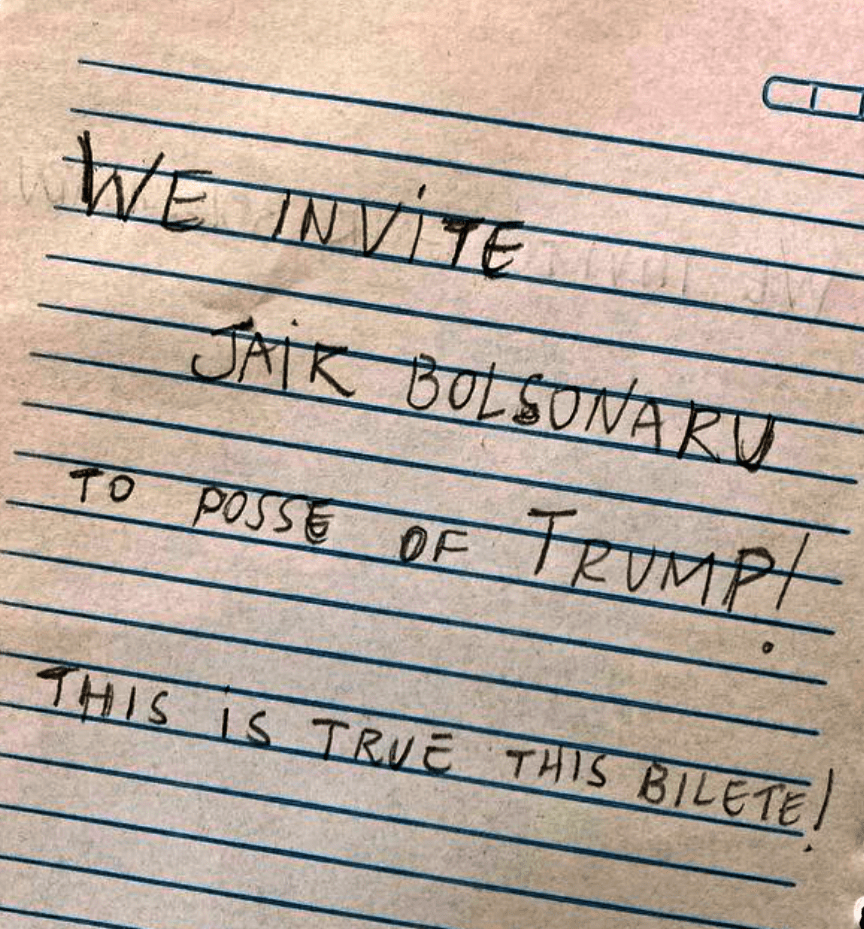 WE INViTE
JAiR BOLSONARU
TO POSSE OF TRUMP!
THIS iS TRUE THIS BILETE!